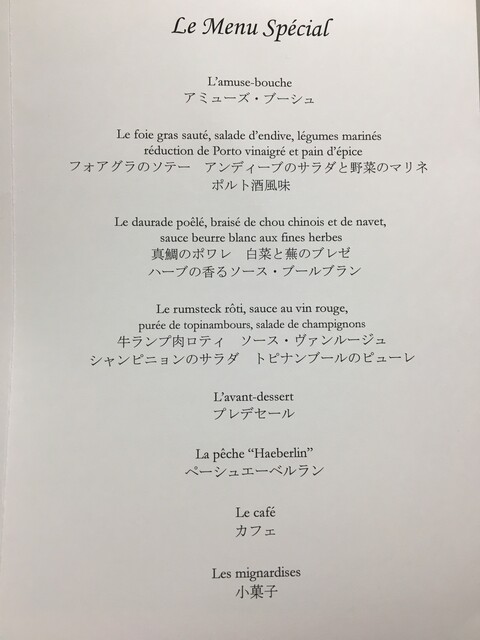 Le Menu Spécial
L'amuse-bouche
アミューズ・ブーシュ
Le foie gras sauté, salade d'endive, légumes marinés
réduction de Porto vinaigré et pain d'épice
フォアグラのソテー　アンディーブのサラダと野菜のマリネ
ポルト酒風味
Le daurade poêlé, braisé de chou chinois et de navet,
sauce beurre blanc aux fines herbes
真鯛のポワレ　白菜と蕪のブレゼ
ハーブの香るソース・ブールブラン
Le rumsteck rôti, sauce au vin rouge,
purée de topinambours, salade de champignons
牛ランプ肉ロティ　ソース・ヴァンルージュ
シャンピニョンのサラダ　トピナンブールのピューレ
L'avant-dessert
プレデセール
La pêche “Haeberlin”
ペーシュエーベルラン
Le café
カフェ
Les mignardises
小菓子